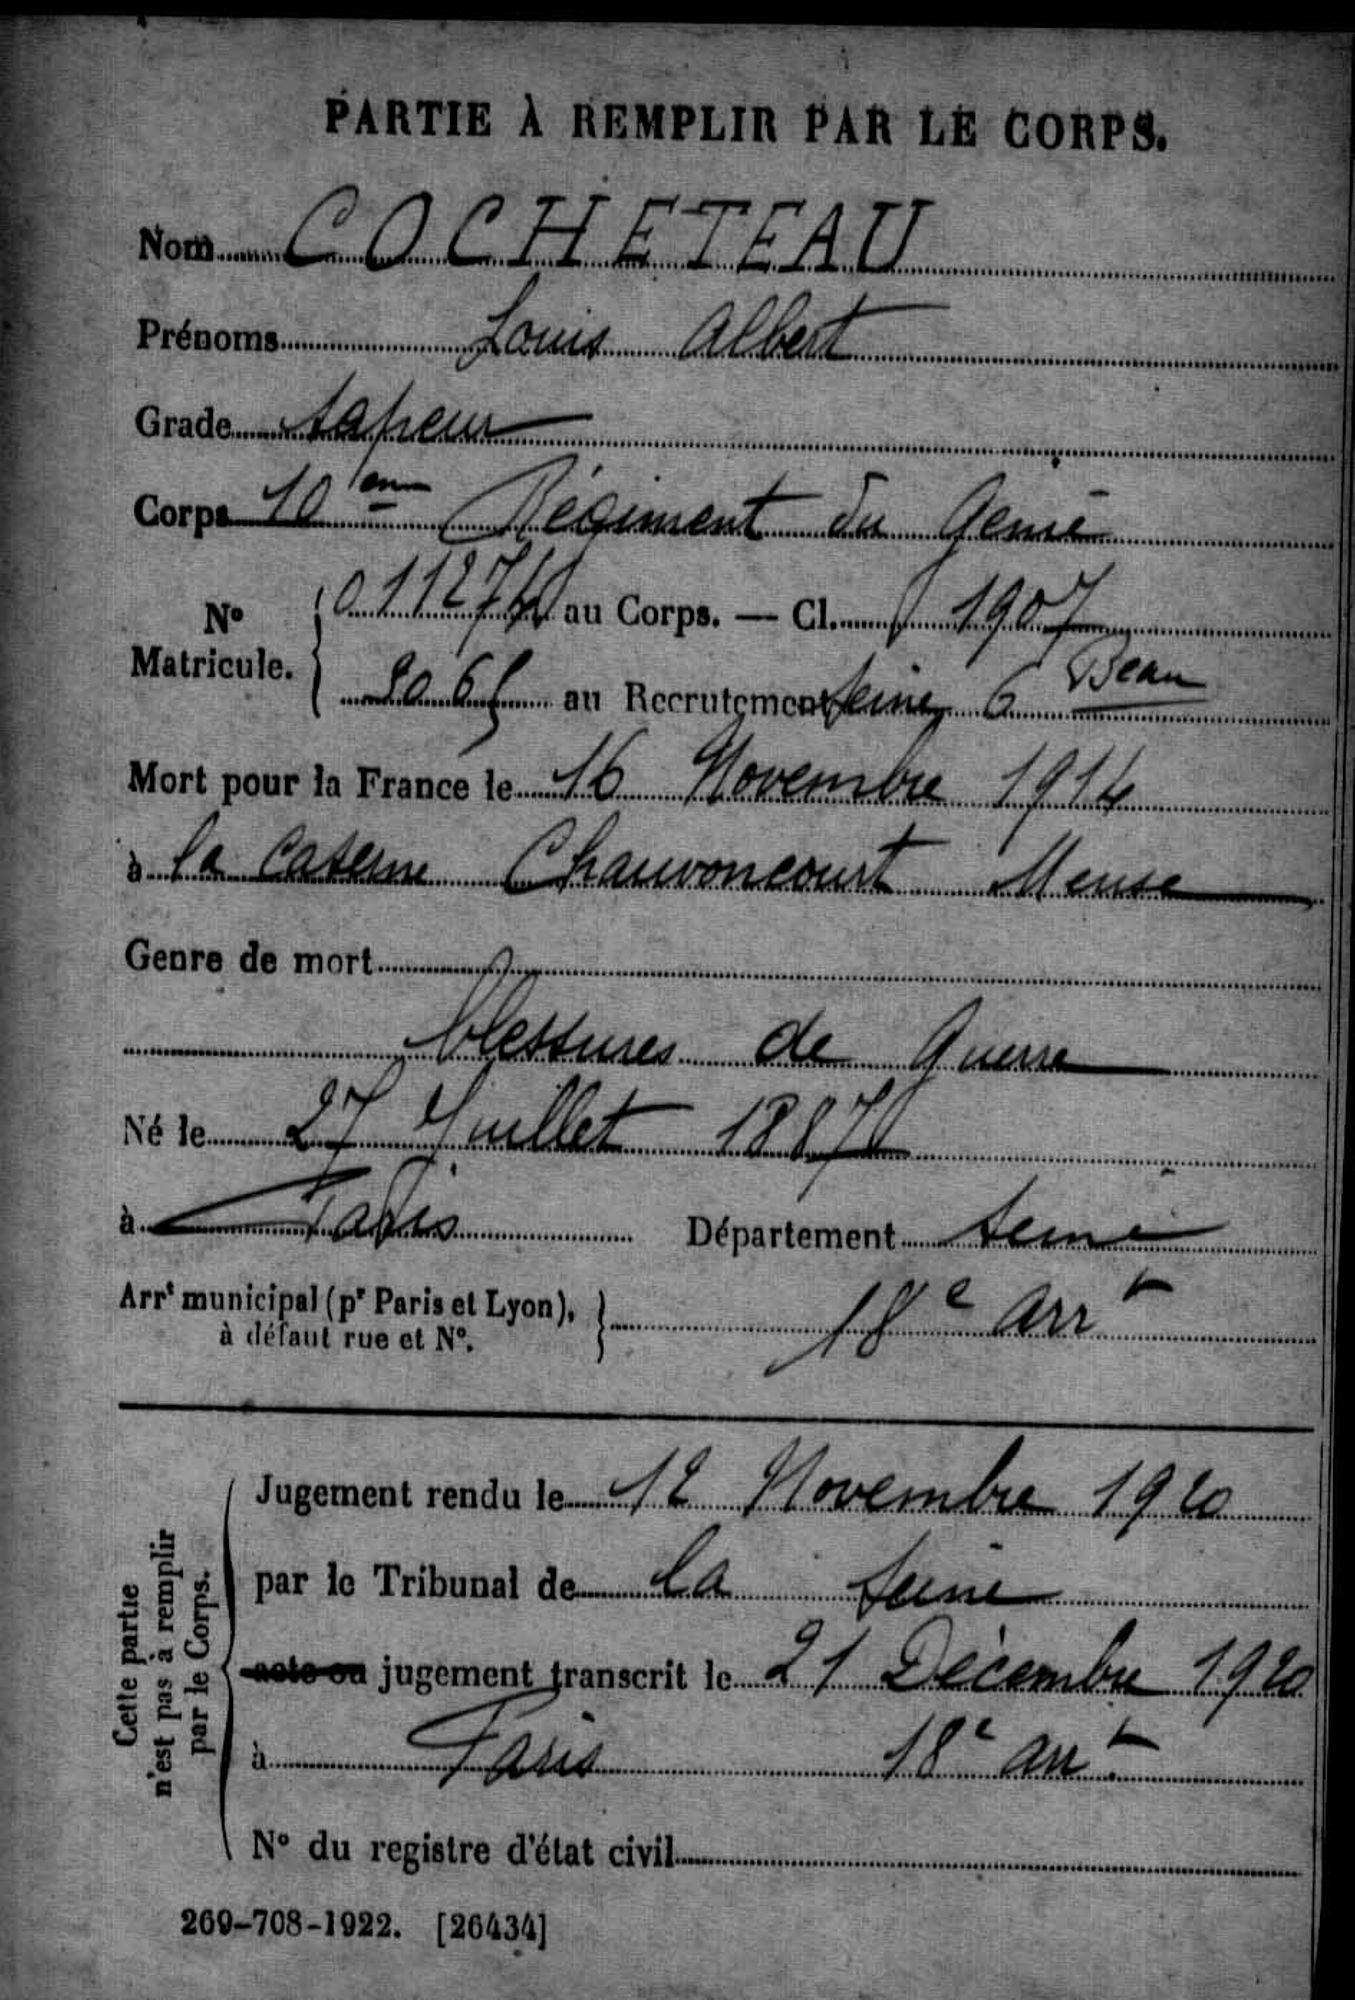 PARTIE À REMPLIR PAR LE CORPS.
Nom COCHETEAU
Prénoms Louis Albert
Grade Sapeur
Corps 10em Régiment du Génie
N° Matricule. 011274 au Corps. — Cl. 1907
au Recrutement Seine 6 Beau
Mort pour la France le 16 Novembre 1914
à la Caserne Chauvoncourt Meuse
Genre de mort
blessures de Guerre
Né le 27 Juillet 1887
à Paris Département Seine
Arrt municipal (pr Paris et Lyon),
à défaut rue et N°.
18e Arrt
Cette partie
n'est pas à remplir
par le Corps.
Jugement rendu le 12 Novembre 1920
par le Tribunal de la Seine
acte ou jugement transcrit le 21 Décembre 1920
à Paris 18e arrt
N° du registre d'état civil
269-708-1922. [26434]